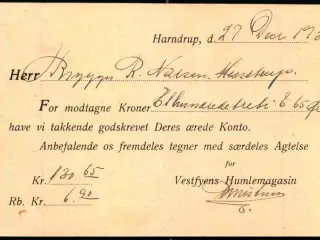 Harndrup, d. 27 Dec 19
Herr Brygger R. Nielsen
For modtagne Kroner Et Hundrede 65
have vi takkende godskrevet Deres ærede Konto.
Anbefalende os fremdeles tegner med særdeles Agtelse
for
Kr. 130 65 Vestfyens Humlemagasin
Rb. Kr. 6.90